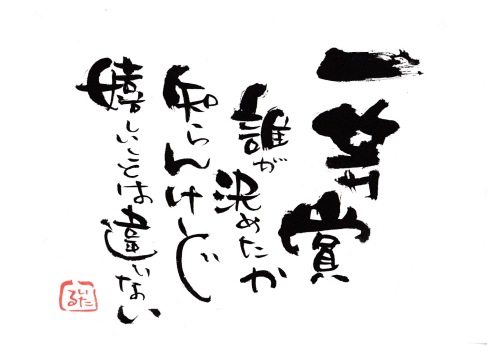 一等賞
誰が決めたか
知らんけど
嬉しいことは違いない
いたる